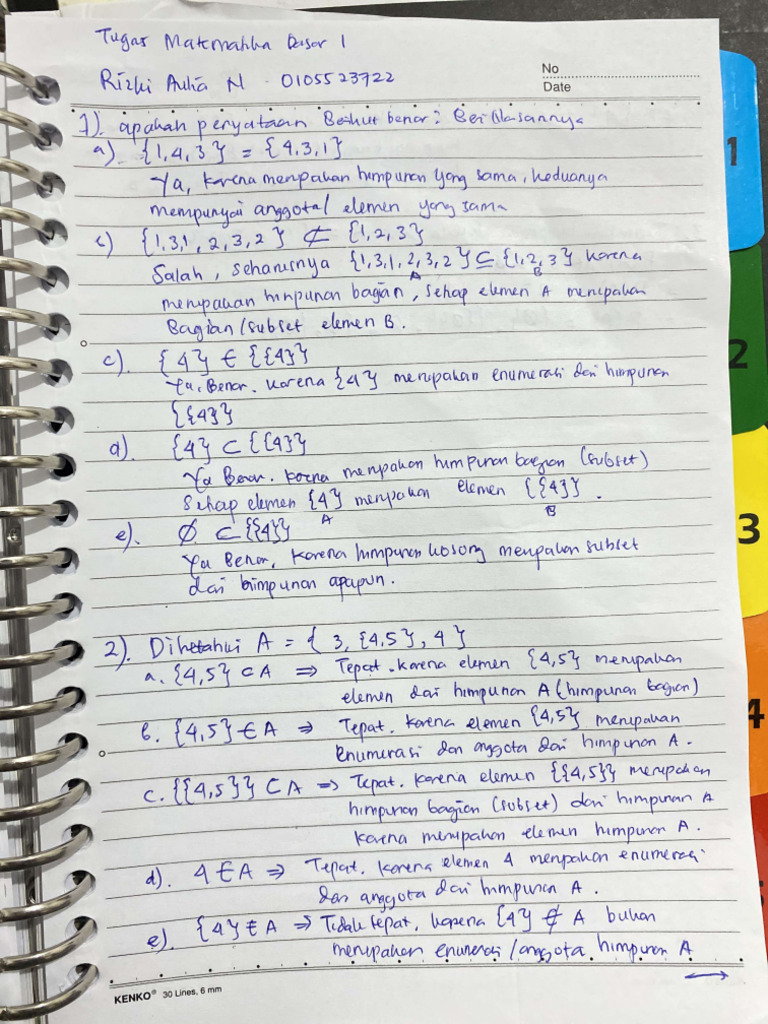 Tugas Matematika Dasar 1
Rizki Aulia N - 0105523722
No
Date
1). apakah penyataan Berikut benar? Beri Alasannya
a) {1,4,3} = {4,3,1}
Ya, karena merupakan himpunan yang sama, keduanya
mempunyai anggota/ elemen yang sama
b) {1,3,1,2,3,2} ⊄ {1,2,3}
Salah, seharusnya {1,3,1,2,3,2} ⊆ {1,2,3} karena
A B
merupakan himpunan bagian, setiap elemen A merupakan
Bagian/subset elemen B.
c). {4} ∈ {{4}}
Ya. Benar. karena {4} merupakan enumerasi dari himpunan
{{4}}
d). {4} ⊂ {{4}}
Ya Benar. karena merupakan himpunan bagian (subset)
Setiap elemen {4} merupakan elemen {{4}}.
A B
e). ∅ ⊂ {{4}}
Ya Benar, karena himpunan kosong merupakan subset
dari himpunan apapun.
2). Diketahui A = { 3, {4,5}, 4 }
a. {4,5} ⊂ A ⇒ Tepat. karena elemen {4,5} merupakan
elemen dari himpunan A (himpunan bagian)
b. {4,5} ∈ A ⇒ Tepat. karena elemen {4,5} merupakan
Enumerasi dan anggota dari himpunan A.
c. {{4,5}} ⊂ A ⇒ Tepat. karena elemen {{4,5}} merupakan
himpunan bagian (subset) dari himpunan A
karena merupakan elemen himpunan A.
d). 4 ∈ A ⇒ Tepat. karena elemen 4 merupakan enumerasi
dan anggota dari himpunan A.
e). {4} ∈ A ⇒ Tidak tepat, karena {4} ∉ A bukan
merupakan enumerasi/anggota himpunan A
KENKO® 30 Lines, 6 mm
1
2
3
4